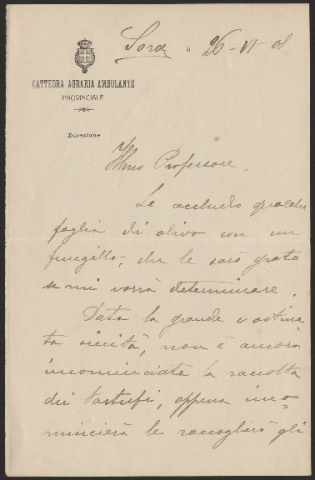 Sora, 26-VI-08
CATTEDRA AGRARIA AMBULANTE
PROVINCIALE
Direzione
Illmo Professore,
Le accludo qualche
foglia di olivo con un
funghillo, che le sarò grato
se mi vorrà determinare.
Data la grande e ostina
ta siccità, non è ancora
incominciata la raccolta
dei Tartufi, appena inco-
mincierà le raccoglierò gli